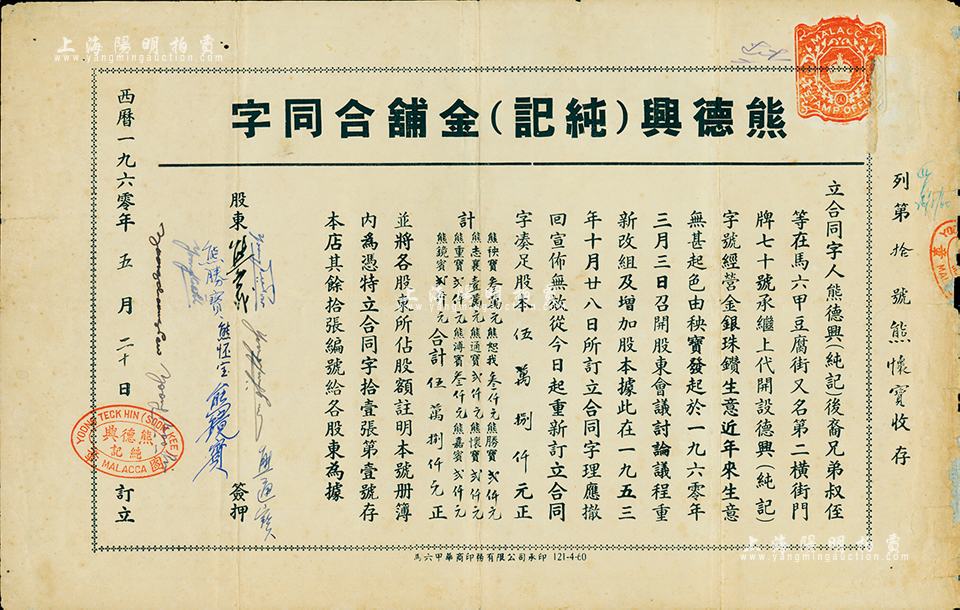 上海陽明拍賣
www.yangmingauction.com
MALACCA
熊德興(純記)金舖合同字
列第拾號熊懷寶收存
立合同字人熊德興(純記)後裔兄弟叔侄
等在馬六甲豆腐街又名第二橫街門
牌七十號承繼上代開設德興(純記)
字號經營金銀珠鑽生意近年來生意
無甚起色由秧寶發起於一九六零年
三月三日召開股東會議討論議程重
新改組及增加股本據此在一九五三
年十月廿八日所訂立合同字理應撤
回宣佈無效從今日起重新訂立合同
字湊足股本伍萬捌仟元正
計
熊秧寶叁萬元熊恕我叁仟元熊勝寶弍仟元
熊志襄壹萬元熊通寶弍仟元熊懷寶弍仟元
熊重寶弍仟元熊濤寶叁仟元熊嘉寶弍仟元
熊鏡寶弍仟元合計伍萬捌仟元正
並將各股東所佔股額註明本號册簿
內為憑特立合同字拾壹張第壹號存
本店其餘拾張編號給各股東為據
股東
熊勝寶
熊通寶
簽押
西曆一九六零年五月二十日訂立
YOONG TECK HIN (SOON KEE)
熊德興
純記
MALACCA
馬六甲華商印務有限公司承印 121-4-60
上海陽明拍賣
www.yangmingauction.com
上海陽明拍賣
www.yangmingauction.com